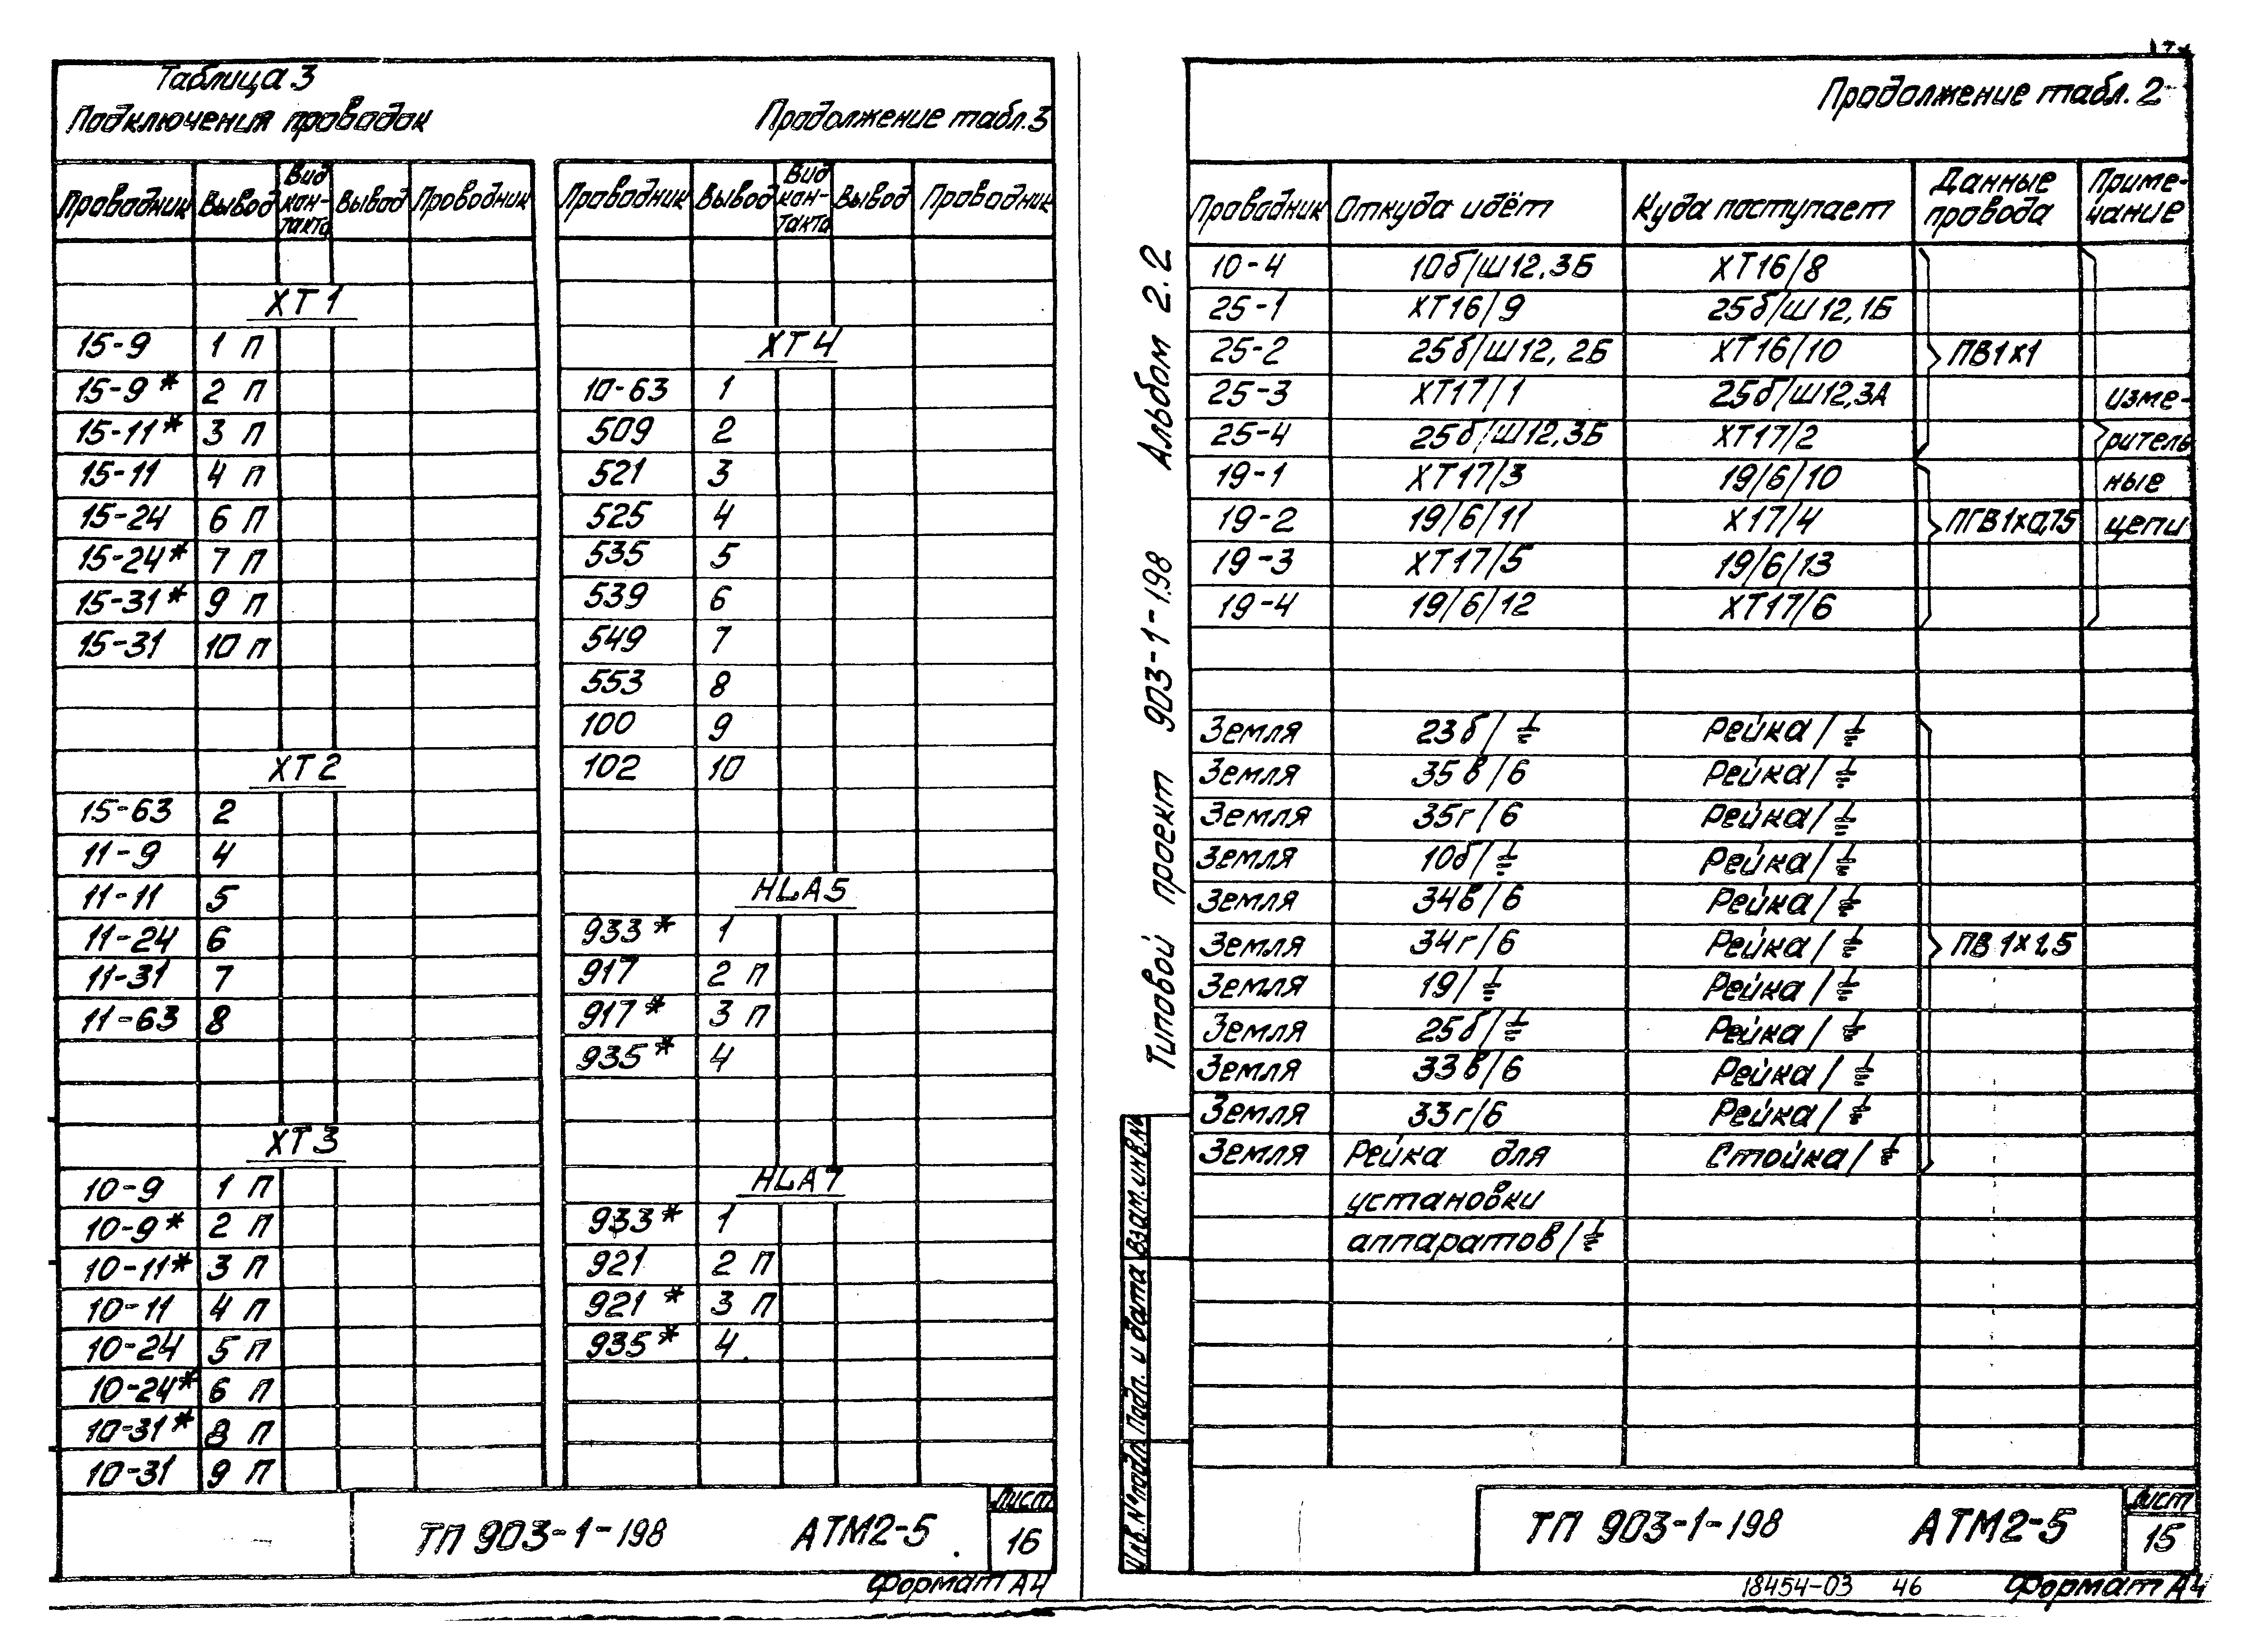 Таблица 3
Подключения проводок
Продолжение табл. 3
Проводник Вывод Вид кон-такта Вывод Проводник
ХТ1
15-9 1 П
15-9* 2 П
15-11* 3 П
15-11 4 П
15-24 6 П
15-24* 7 П
15-31* 9 П
15-31 10 П
ХТ2
15-63 2
11-9 4
11-11 5
11-24 6
11-31 7
11-63 8
ХТ3
10-9 1 П
10-9* 2 П
10-11* 3 П
10-11 4 П
10-24 5 П
10-24* 6 П
10-31* 8 П
10-31 9 П
Проводник Вывод Вид кон-такта Вывод Проводник
ХТ4
10-63 1
509 2
521 3
525 4
535 5
539 6
549 7
553 8
100 9
102 10
HLA5
933* 1
917 2 П
917* 3 П
935* 4
HLA7
933* 1
921 2 П
921* 3 П
935* 4
ТП 903-1-198 АТМ2-5
Лист
16
Формат А4
Продолжение табл. 2
Проводник Откуда идёт Куда поступает Данные провода Приме-чание
10-4 10б/Ш12.3Б ХТ16/8
25-1 ХТ16/9 25б/Ш12,1Б
25-2 25б/Ш12,2Б ХТ16/10 ПВ1х1
25-3 ХТ17/1 25б/Ш12,3А Изме-
25-4 25б/Ш12,3Б ХТ17/2 ритель
19-1 ХТ17/3 19/6/10 ные
19-2 19/6/11 Х17/4 ПГВ1х0,75 цепи
19-3 ХТ17/5 19/6/13
19-4 19/6/12 ХТ17/6
Земля 23б/⏚ Рейка/⏚
Земля 35в/6 Рейка/⏚
Земля 35г/6 Рейка/⏚
Земля 10б/⏚ Рейка/⏚
Земля 34в/6 Рейка/⏚
Земля 34г/6 Рейка/⏚ ПВ 1х1,5
Земля 19/⏚ Рейка/⏚
Земля 25б/⏚ Рейка/⏚
Земля 33в/6 Рейка/⏚
Земля 33г/6 Рейка/⏚
Земля Рейка для Стойка/⏚
установки
аппаратов/⏚
Типовой проект 903-1-198 Альбом 2.2
Инв.№подл. Подп. и дата Взам.инв.№
ТП 903-1-198 АТМ2-5
Лист
15
18454-03 46 Формат А4